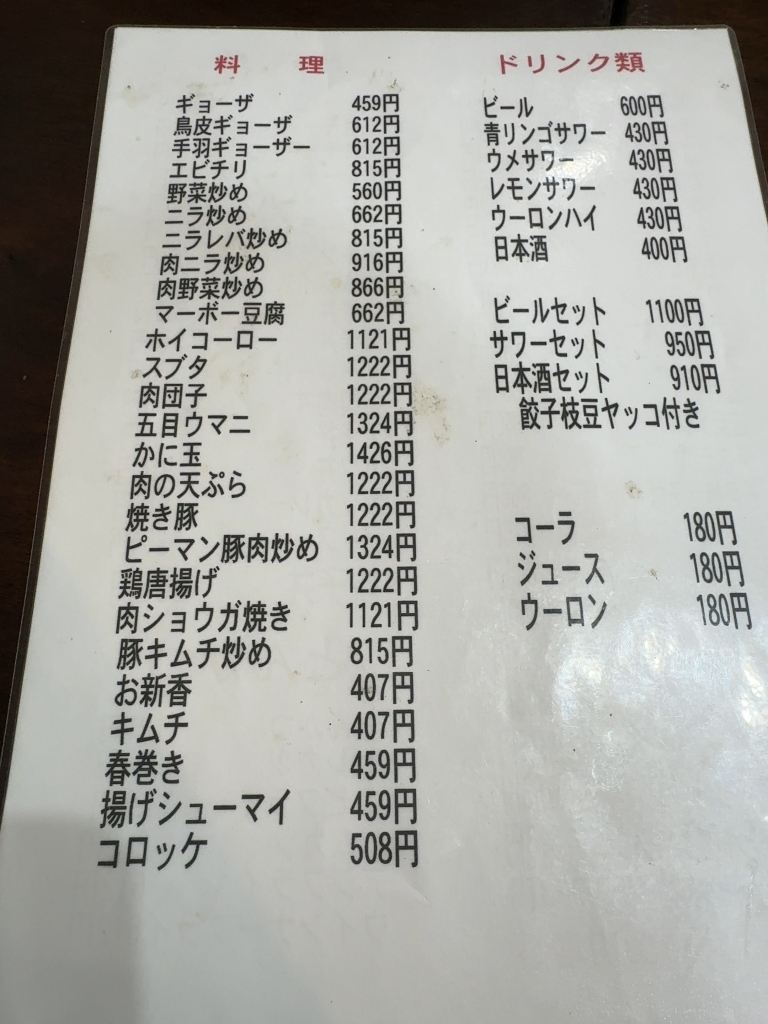 料 理
ギョーザ 459円
鳥皮ギョーザ 612円
手羽ギョーザー 612円
エビチリ 815円
野菜炒め 560円
ニラ炒め 662円
ニラレバ炒め 815円
肉ニラ炒め 916円
肉野菜炒め 866円
マーボー豆腐 662円
ホイコーロー 1121円
スブタ 1222円
肉団子 1222円
五目ウマニ 1324円
かに玉 1426円
肉の天ぷら 1222円
焼き豚 1222円
ピーマン豚肉炒め 1324円
鶏唐揚げ 1222円
肉ショウガ焼き 1121円
豚キムチ炒め 815円
お新香 407円
キムチ 407円
春巻き 459円
揚げシューマイ 459円
コロッケ 508円
ドリンク類
ビール 600円
青リンゴサワー 430円
ウメサワー 430円
レモンサワー 430円
ウーロンハイ 430円
日本酒 400円
ビールセット 1100円
サワーセット 950円
日本酒セット 910円
餃子枝豆ヤッコ付き
コーラ 180円
ジュース 180円
ウーロン 180円